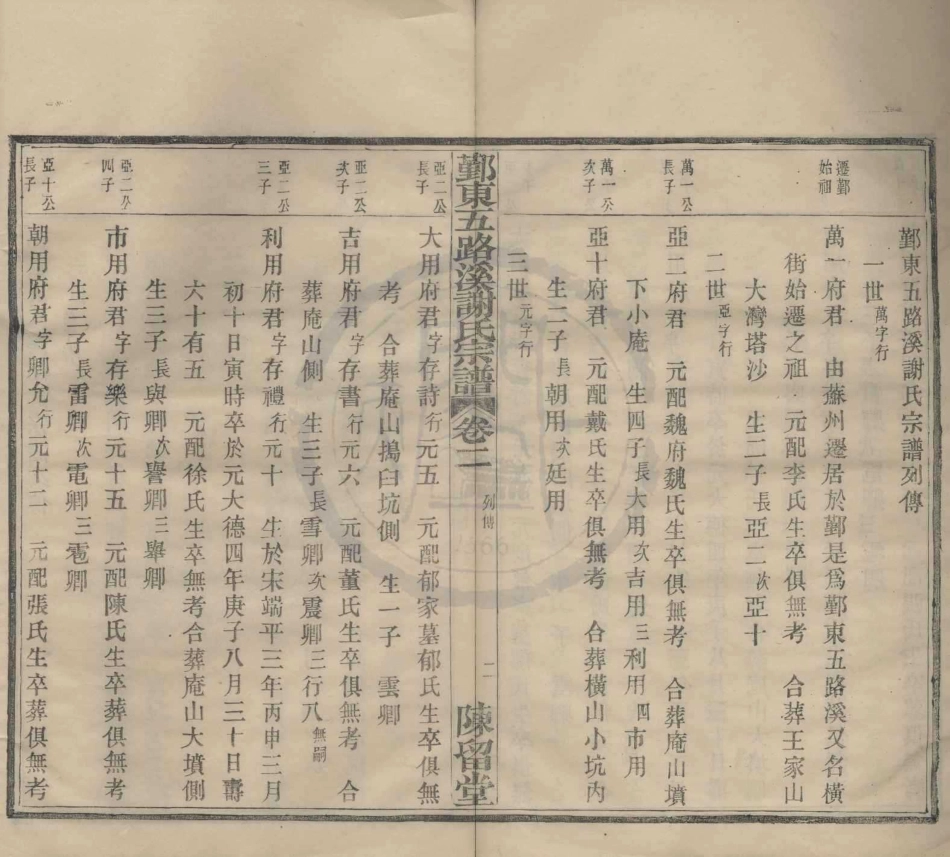 鄞東五路溪謝氏宗譜列傳
一世萬字行
遷鄞始祖
萬一府君　由蘇州遷居於鄞是爲鄞東五路溪又名橫
街始遷之祖　元配李氏生卒俱無考　合葬王家山
大灣塔沙　生二子長亞二次亞十
二世亞字行
萬一公長子
亞二府君　元配魏府魏氏生卒俱無考　合葬庵山墳
下小庵　生四子長大用次吉用三利用四市用
萬一公次子
亞十府君　元配戴氏生卒俱無考　合葬橫山小坑內
生二子長朝用次廷用
三世元字行
鄞東五路溪謝氏宗譜　卷二　列傳　一　陳留堂
亞二公長子
大用府君字存詩行元五　元配郁家墓郁氏生卒俱無
考　合葬庵山搗臼坑側　生一子　雲卿
亞二公次子
吉用府君字存書行元六　元配董氏生卒俱無考　合
葬庵山側　生三子長雪卿次震卿三行八無嗣
亞二公三子
利用府君字存禮行元十　生於宋端平三年丙申三月
初十日寅時卒於元大德四年庚子八月三十日壽
六十有五　元配徐氏生卒無考合葬庵山大墳側
生三子長與卿次譽卿三舉卿
亞二公四子
市用府君字存樂行元十五　元配陳氏生卒葬俱無考
生三子長雷卿次電卿三雹卿
亞十公長子
朝用府君字卿允行元十二　元配張氏生卒葬俱無考